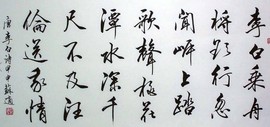 李白乘舟
將欲行忽
聞岸上踏
歌聲桃花
潭水深千
尺不及汪
倫送我情
唐李白詩甲申蘇